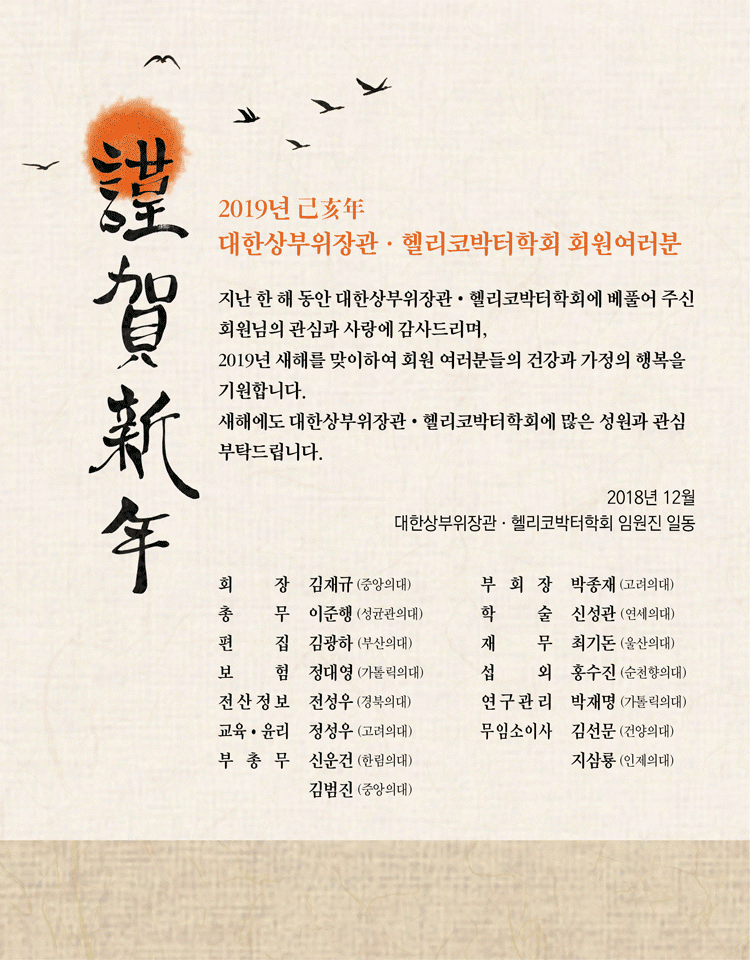 謹賀新年
2019년 己亥年
대한상부위장관 · 헬리코박터학회 회원여러분
지난 한 해 동안 대한상부위장관 • 헬리코박터학회에 베풀어 주신
회원님의 관심과 사랑에 감사드리며,
2019년 새해를 맞이하여 회원 여러분들의 건강과 가정의 행복을
기원합니다.
새해에도 대한상부위장관 • 헬리코박터학회에 많은 성원과 관심
부탁드립니다.
2018년 12월
대한상부위장관 · 헬리코박터학회 임원진 일동
회 장 김재규 (중앙의대) 부 회 장 박종재 (고려의대)
총 무 이준행 (성균관의대) 학 술 신성관 (연세의대)
편 집 김광하 (부산의대) 재 무 최기돈 (울산의대)
보 험 정대영 (가톨릭의대) 섭 외 홍수진 (순천향의대)
전산정보 전성우 (경북의대) 연구관리 박재명 (가톨릭의대)
교육 • 윤리 정성우 (고려의대) 무임소이사 김선문 (건양의대)
부 총 무 신운건 (한림의대) 지삼룡 (인제의대)
김범진 (중앙의대)